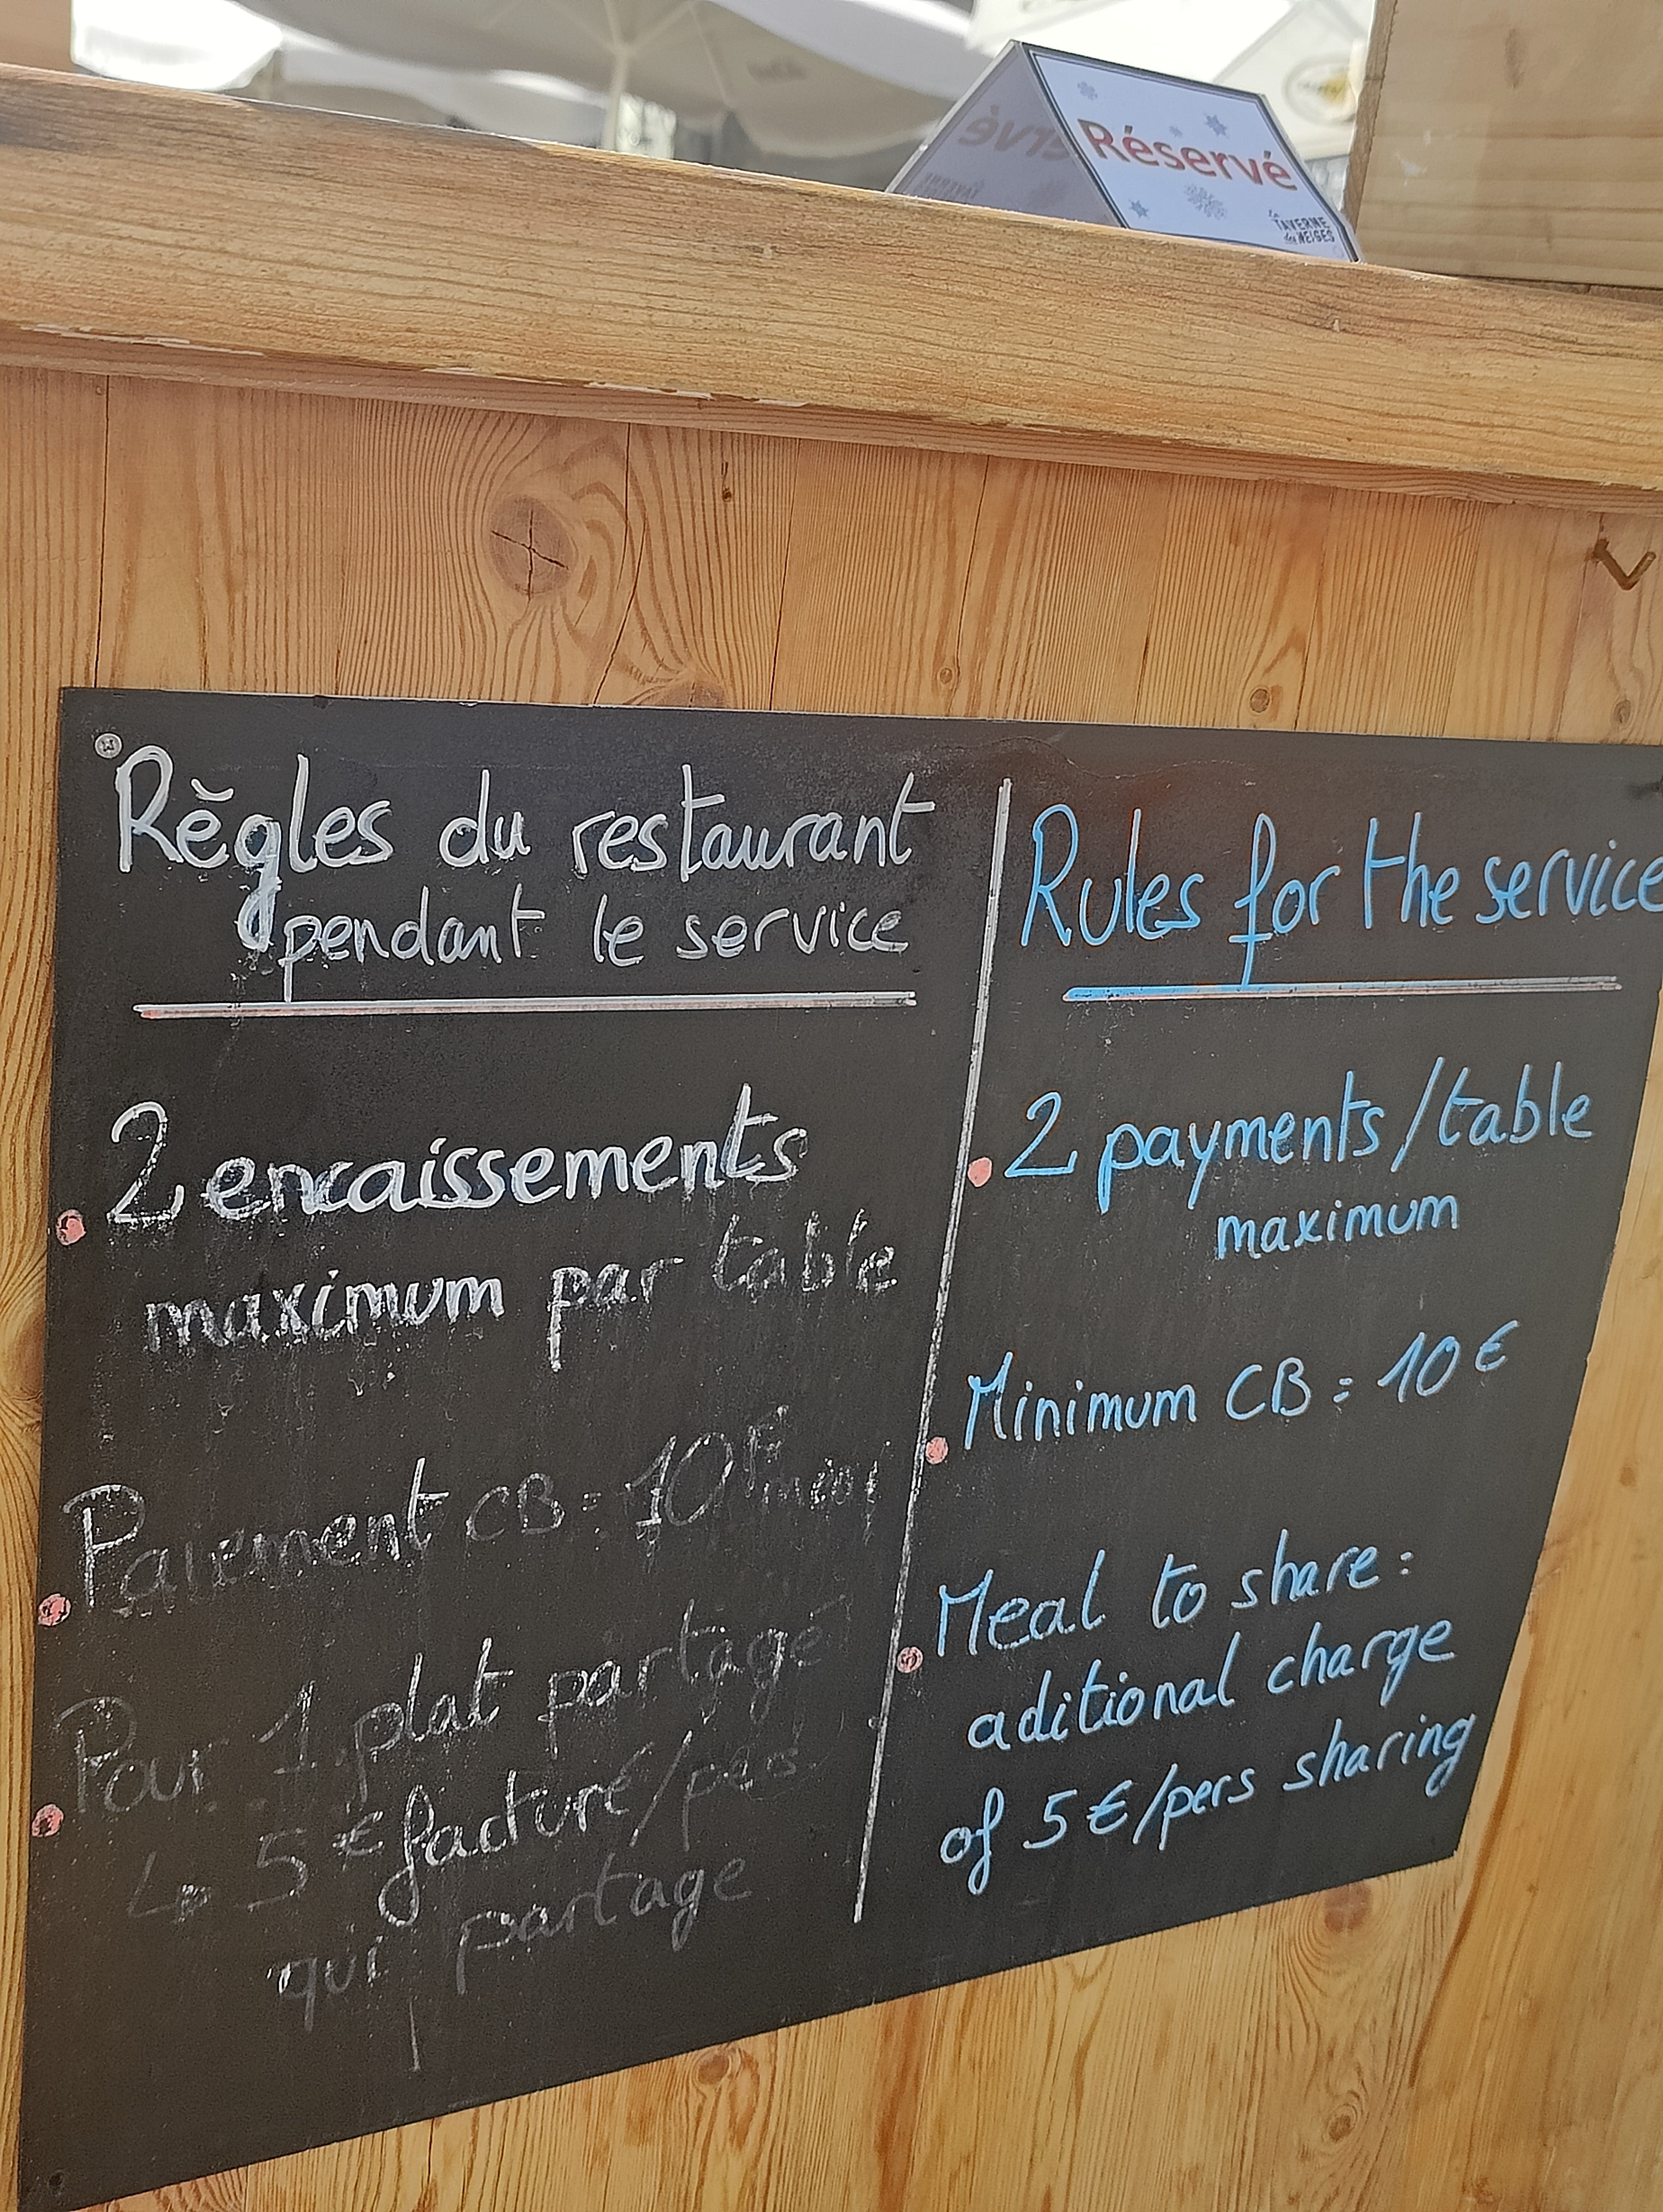 Réservé
la
TAVERNE
des NEIGES
Règles du restaurant
pendant le service
2 encaissements
maximum par table
Paiement CB = 10€
Pour 1 plat partagé
5€ facturé/pers
qui partage
Rules for the service
2 payments/table
maximum
Minimum CB = 10€
Meal to share :
aditional charge
of 5€/pers sharing